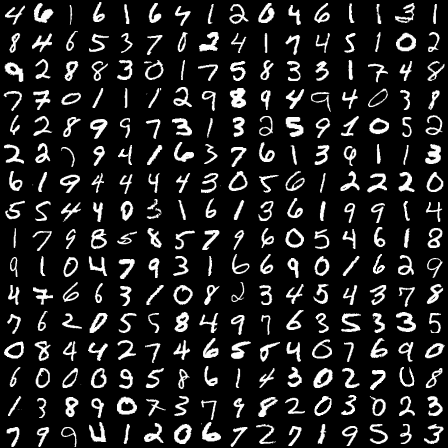 4 6 1 6 1 6 4 1 2 0 4 6 1 1 3 1
8 4 6 5 3 7 0 2 4 1 7 4 5 1 0 2
9 2 8 8 3 0 1 7 5 8 3 3 1 7 4 8
7 7 0 1 1 1 2 9 8 9 4 9 4 0 3 8
6 2 8 9 9 7 3 1 3 2 5 9 1 0 5 2
2 2 9 4 1 6 3 7 6 1 3 9 1 1 3
6 1 9 4 4 4 4 3 0 5 6 1 2 2 2 0
5 5 4 4 0 3 1 6 1 3 6 1 9 9 1 4
1 7 9 8 5 8 5 7 9 6 0 5 4 6 1 8
9 1 0 4 7 9 3 1 6 6 9 0 1 6 2 9
4 7 6 6 3 1 0 8 2 3 4 5 4 3 7 8
7 6 2 0 5 5 8 4 9 7 6 3 5 3 3 5
0 8 4 4 2 7 4 6 5 5 4 0 7 6 9 0
6 0 0 0 9 5 8 6 1 4 3 0 2 7 0 8
1 3 8 9 0 7 3 7 9 8 2 0 3 0 2 3
7 9 9 4 1 2 0 6 7 2 7 1 9 5 3 3